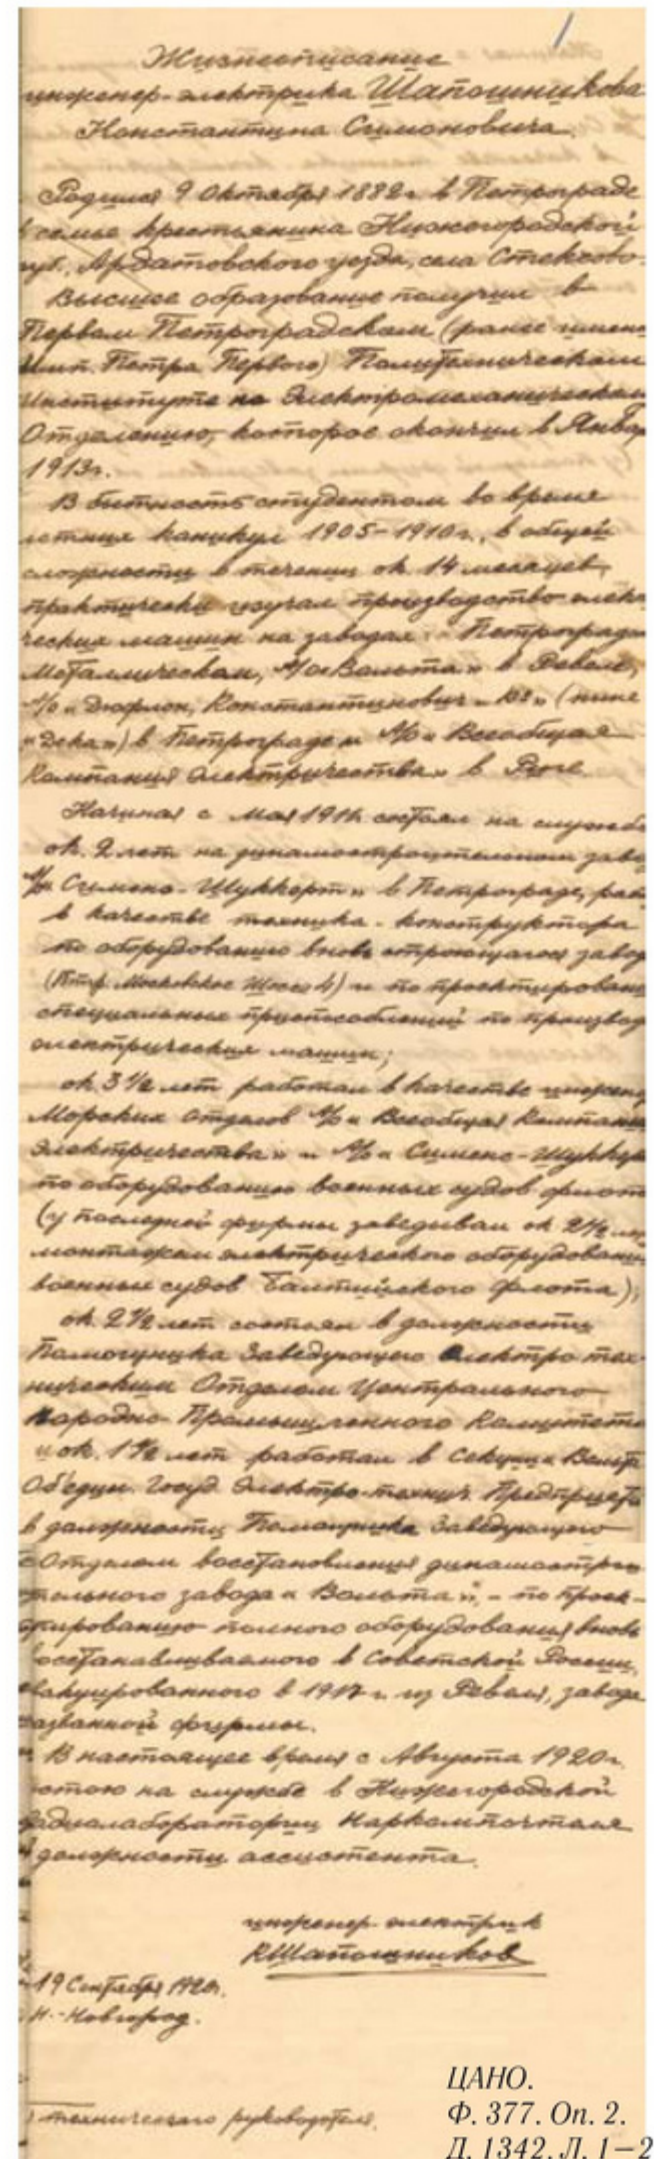 1
Жизнеописание
инженер-электрика Шапошникова
Константина Симоновича.
Родился 9 Октября 1882 г. в Петрограде
в семье крестьянина Нижегородской
губ., Ардатовского уезда, села Стексово.
Высшее образование получил в
Первом Петроградском (ранее имени
Имп. Петра Первого) Политехническом
Институте по Электромеханическому
Отделению, которое окончил в Январ
1913 г.
В бытность студентом во время
летних каникул 1905-1910 г., в общей
сложности в течении ок 14 месяцев,
практически изучал производство элек
ческих машин на заводах: Петроград
Металлическом, А/О «Вольта» в Ревеле,
А/О «Дюфлон, Константинович и Ко» (ныне
«Дека») в Петрограде и А/О «Всеобщая
Компания Электричества» в Риге.
Начиная с Мая 1911 состоял на службе
ок. 2 лет на динамостроительном заво
А/О «Сименс-Шуккерт» в Петрограде, раб
в качестве техника-конструктора
по оборудованию вновь строющагося завод
(Птр. Московское Шоссе 4) и по проектирован
специальных приспособлений по производ
электрических машин;
ок 3 1/2 лет работал в качестве инжене
Морских отделов А/О «Всеобщая Компания
Электричества» и А/О «Сименс-Шуккер
по оборудованию военных судов флота
(у последней фирмы заведывал ок 2 1/2 ле
монтажем электрического оборудования
военных судов Балтийского флота);
ок. 2 1/2 лет состоял в должности
Помощника Заведующего Электротех-
ническим Отделом Центрального
Народно-Промышленного Комитета
и ок. 1 1/2 лет работал в Секции Вольта
Объедин. Госуд. Электро-технич. Предприяти
в должности Помощника Заведующего
Отделом восстановления динамострои
тельного завода «Вольта», - по проек-
тированию полного оборудования вновь
восстанавливаемого в Советской России,
эвакуированного в 1917 г. из Ревеля, завода
названной фирмы.
В настоящее время с Августа 1920 г.
состою на службе в Нижегородской
Радиолаборатории Наркомпочтеля
в должности ассистента.
инженер-электрик
КШапошников
19 Сентября 1920 г.
Н.-Новгород.
технического руководителя.
ЦАНО.
Ф. 377. Оп. 2.
Д. 1342. Л. 1–2